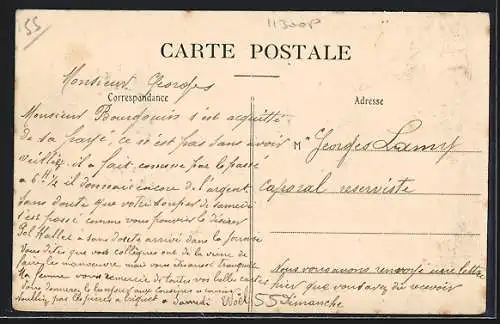 55
11300P
CARTE POSTALE
Monsieur Georges
Correspondance
Adresse
Monsieur Bourgouin s'est acquitté
de sa ce n'est pas sans avoir
veiller, il a fait comme par le passé
a 6 H ½ il donnait encore de l'argent
sans doute que votre souper de samedi
s'est passé comme vous pouviez le désirer
Pol Hallet a sans doute arrivé dans la
Vous dites que vos collègues ont de la veine de
faire les manœuvre, mais vous
Ma femme vous remercie de toutes vos belles cartes
Vous donnerez le bonjour aux
n'oubliez pas les pierres a briquet a Samedi
M Georges Lamy
Caporal reserviste
Nous vous avons renvoyé une lettre
hier que vous avez du recevoir
55 Dimanche